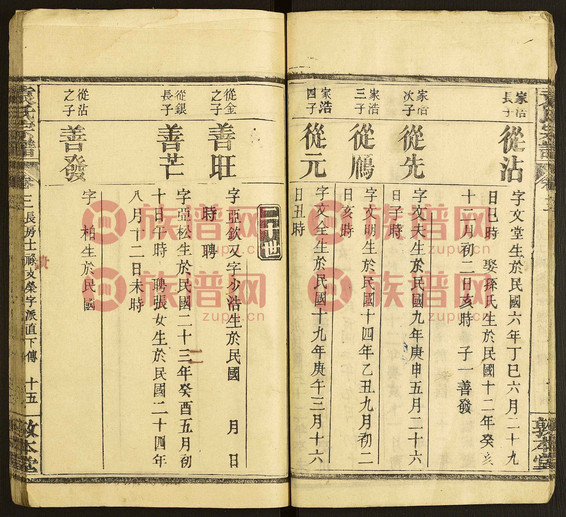 家浩
長子
從沾
字文堂生於民國六年丁巳六月二十九
日巳時 娶孫氏生於民國十二年癸亥
十二月初二日亥時 子一善發
家浩
次子
從先
字文夫生於民國九年庚申五月二十六
日子時
家浩
三子
從鴈
字文明生於民國十四年乙丑九月初二
日亥時
家浩
四子
從元
字文全生於民國十九年庚午三月十六
日丑時
二十世
從金
之子
善旺
字亞欽又字少浩生於民國 月 日
時 聘
從銀
長子
善芒
字亞松生於民國二十三年癸酉五月初
十日午時 聘張女生於民國二十四年
八月十二日未時
從沾
之子
善發
字 柏生於民國
袁氏宗譜
卷三
長房士祿支榮字派直下傳
十五
敦本堂
族谱网
zupu.cn